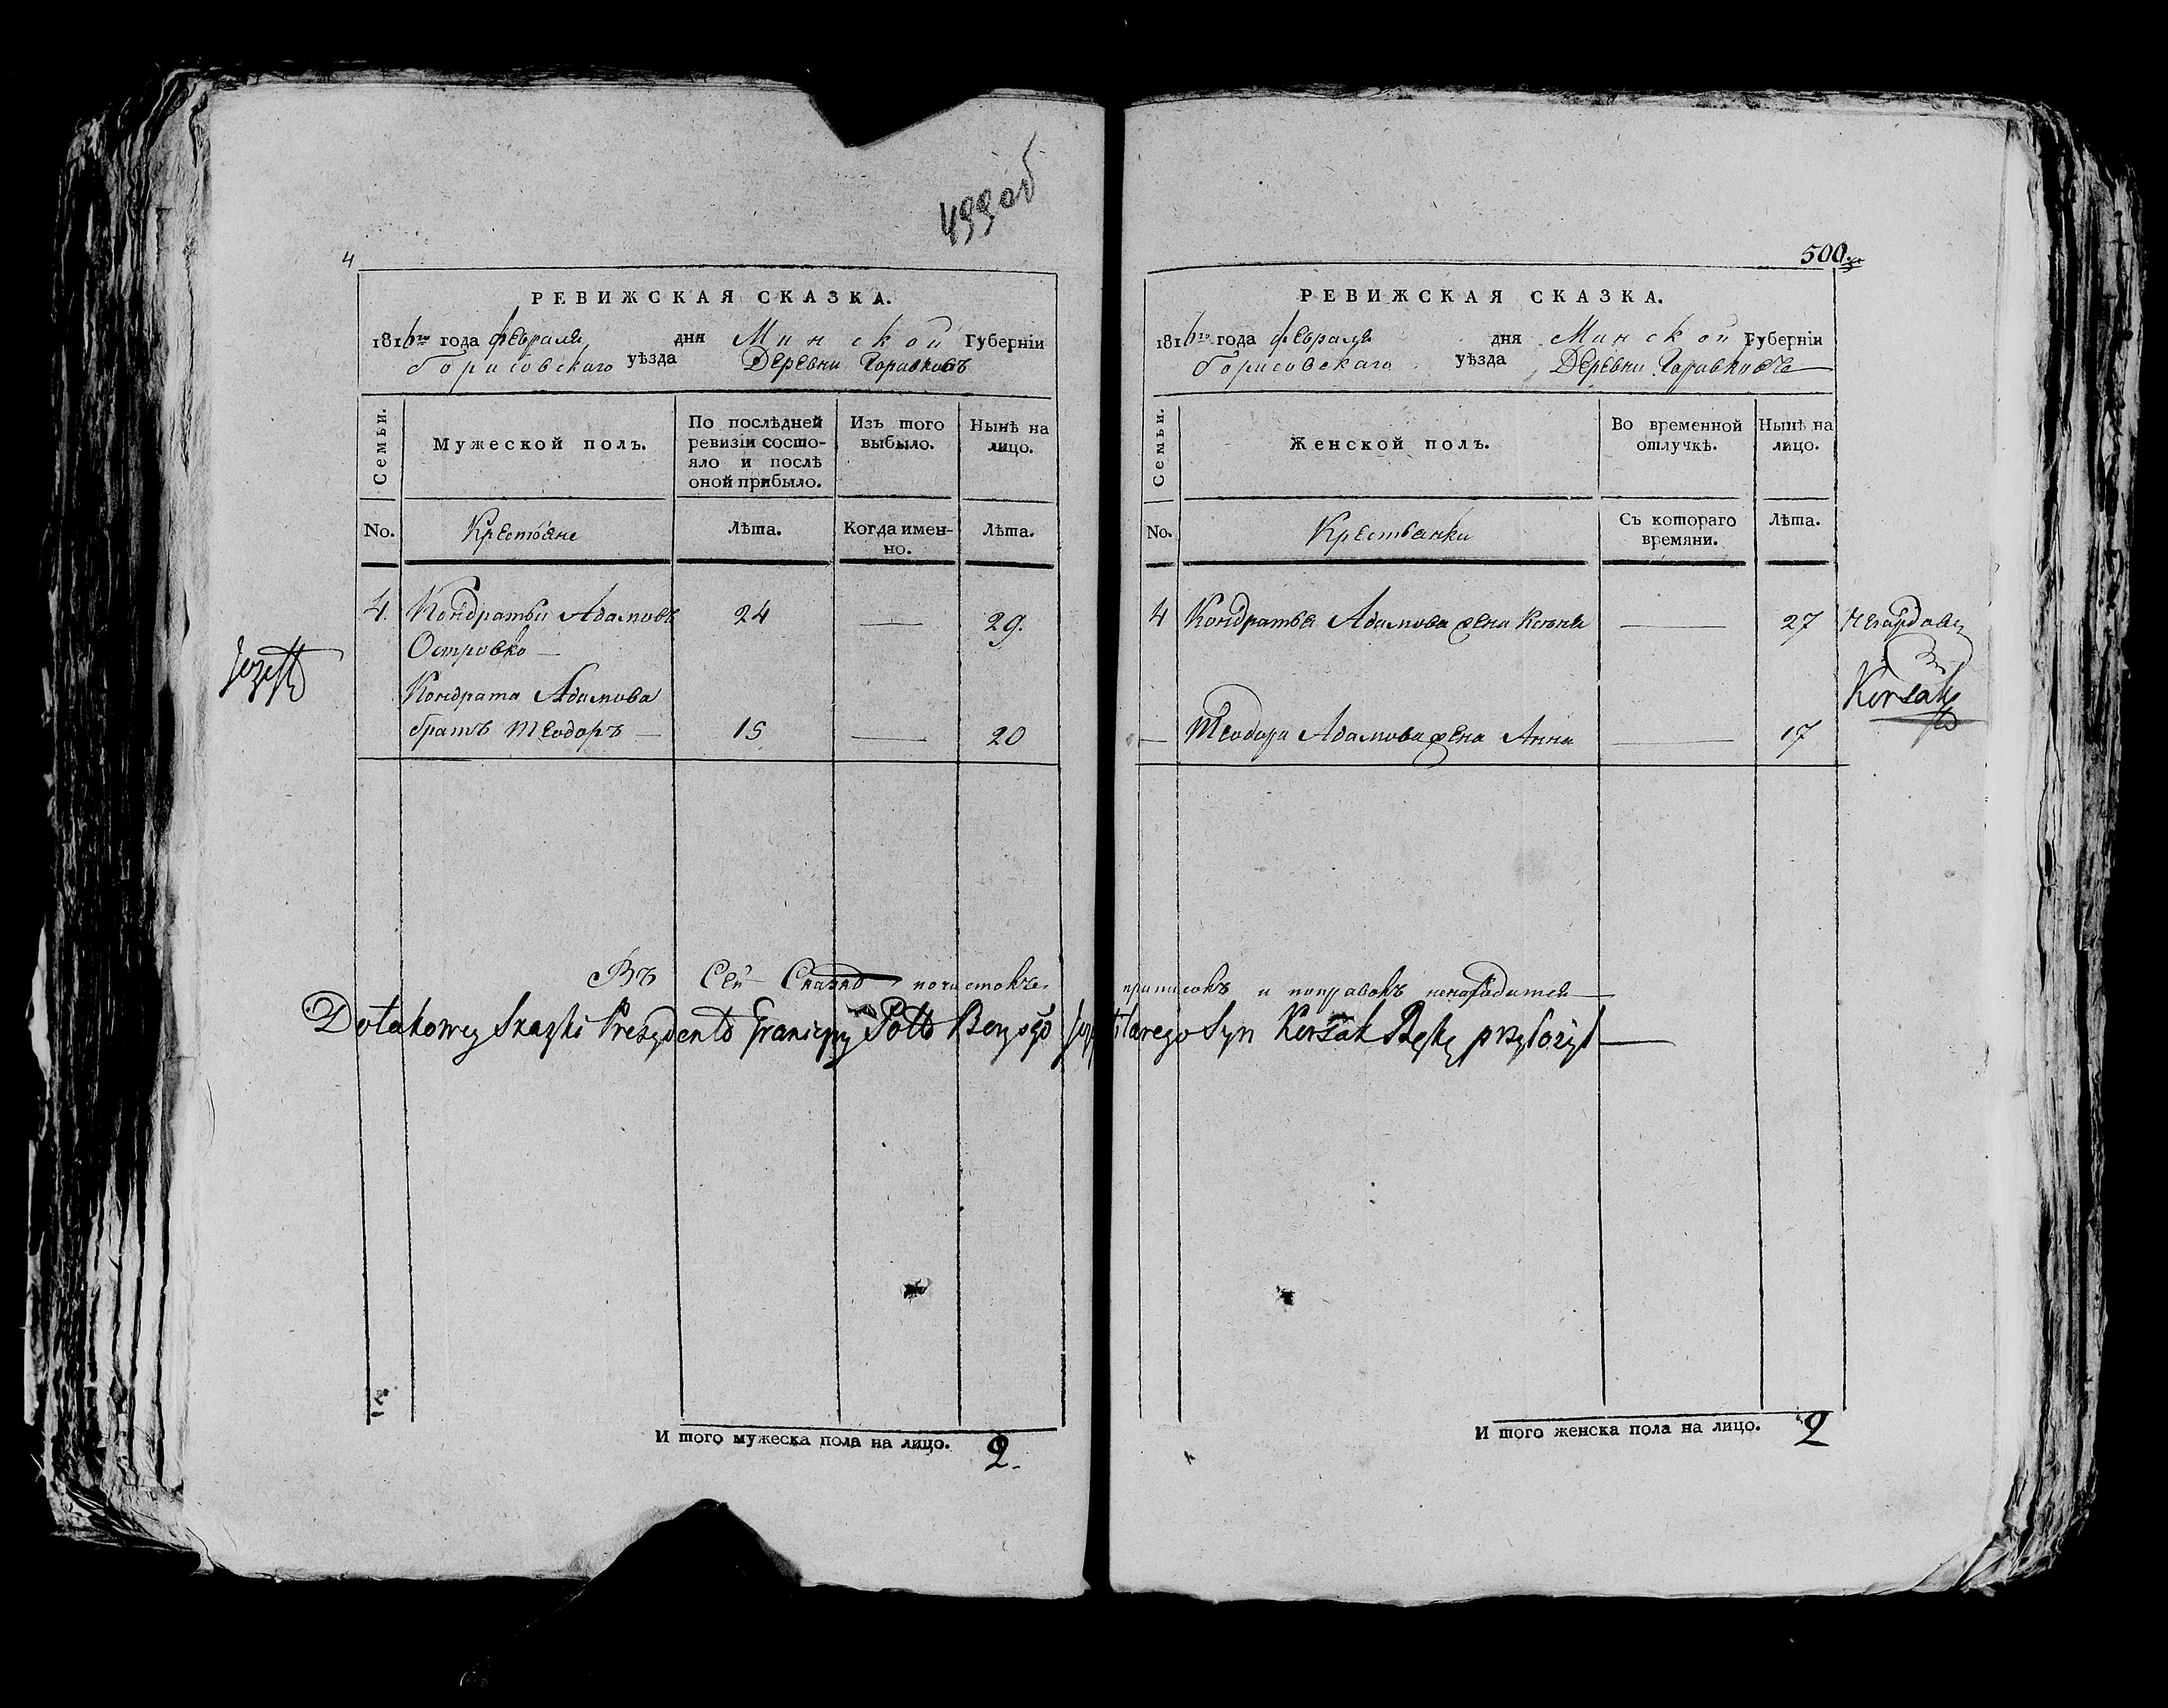 499 об
4
РЕВИЖСКАЯ СКАЗКА.
1816го года февраля дня Минской Губерніи
Борисовскаго уѣзда Деревни
Семьи.
Мужеской полъ.
По послѣдней ревизіи состо-
яло и послѣ
оной прибыло.
Изъ того
выбыло.
Нынѣ на
лицо.
No.
Крестьяне
Лѣта.
Когда имен-
но.
Лѣта.
4. Кондратьи Адамовъ 24 — 29.
Островко —
Кондрата Адамова
братъ Теодоръ — 15 — 20
Jozeff
Въ Сей Сказке почистокъ
Dotakowey Skazki Prezydenta Graniczny
И того мужеска пола на лицо. 2.
500.
РЕВИЖСКАЯ СКАЗКА.
1816го года февраля дня Минской Губерніи
Борисовскаго уѣзда Деревни
Семьи.
Женской полъ.
Во временной
отлучкѣ.
Нынѣ на
лицо.
No.
Крестьянки
Съ котораго
времяни.
Лѣта.
4 Кондратья Адамова жена Ксенья — 27
— Теодора Адамова жена Анна — 17
Korsak
приписокъ и поправокъ ненаходится —
Syn Korsak Rękę przylożył —
И того женска пола на лицо. 2